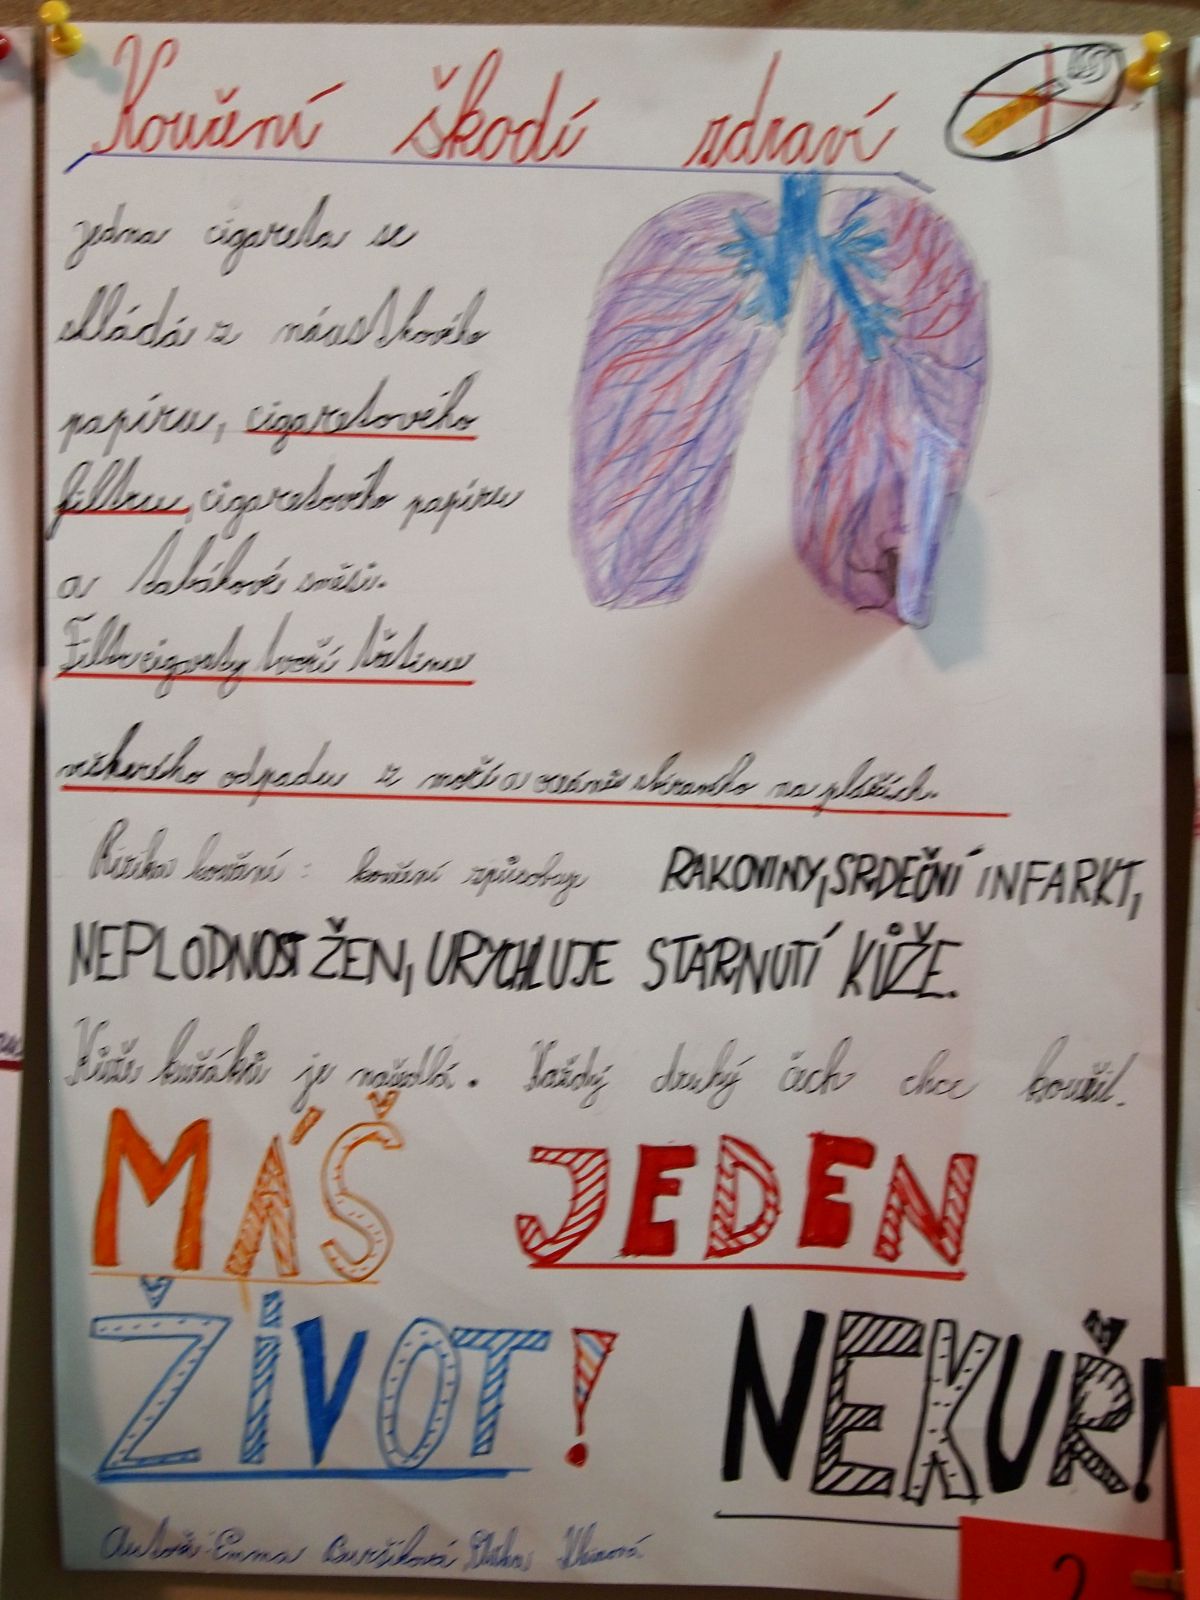 Kouření škodí zdraví
jedna cigareta se
skládá z náustkového
papíru, cigaretového
filtru, cigaretového papíru
a tabákové směsi.
Filtr cigarety tvoří třetinu
veškerého odpadu z moří a oceánů sbíraného na plážích.
Rizika kouření: kouření způsobuje RAKOVINY, SRDEČNÍ INFARKT,
NEPLODNOST ŽEN, URYCHLUJE STÁRNUTÍ KŮŽE.
Kůže kuřáků je našedlá. Každý druhý čech chce kouřit.
MÁŠ JEDEN
ŽIVOT! NEKUŘ!
Autoři: Emma
2